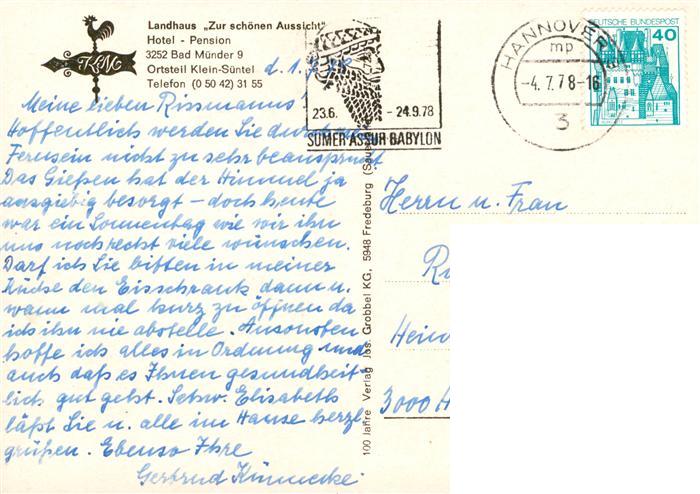 Landhaus „Zur schönen Aussicht"
Hotel - Pension
3252 Bad Münder 9
Ortsteil Klein-Süntel
Telefon (0 50 42) 31 55
d. 1.7.78
Meine lieben Rissmanns!
Hoffentlich werden Sie durch
Fernsein nicht zu sehr beansprucht
Das Gießen hat der Himmel ja
ausgiebig besorgt - doch heute
war ein Sonnentag wie wir ihn
uns noch recht viele wünschen.
Darf ich Sie bitten in meiner
Küche den Eisschrank dann u.
wann mal kurz zu öffnen da
ich ihn nie abstelle. Ansonsten
hoffe ich alles in Ordnung und
auch daß es Ihnen gesundheit-
lich gut geht. Schw. Elisabeth
läßt Sie u. alle im Hause herzl.
grüßen. Ebenso Ihre
Gertrud Künnecke
23.6. - 24.9.78
SUMER ASSUR BABYLON
HANNOVER
mp
-4.7.78-16
3
DEUTSCHE BUNDESPOST
40
100 Jahre Verlag Jos. Grobbel KG, 5948 Fredeburg
Herrn u. Frau
R
Hein
3000 H